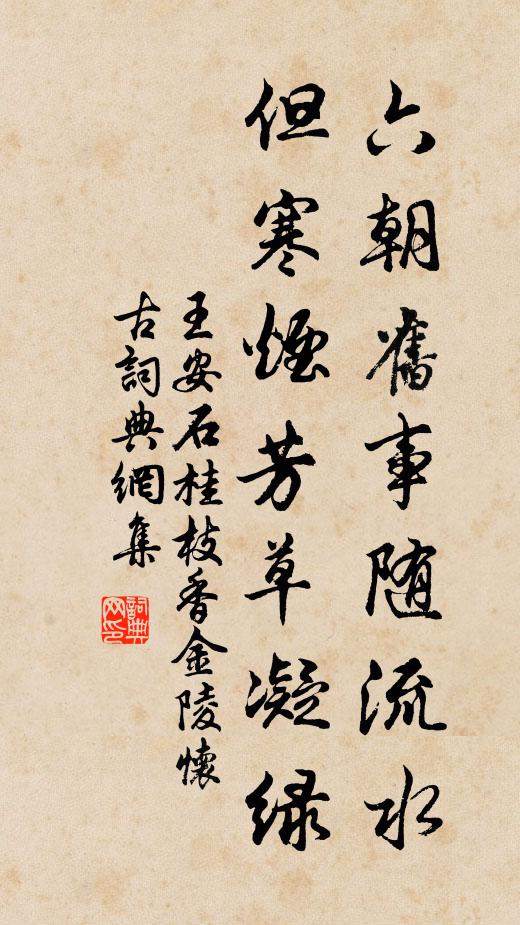 六朝舊事随流水
但寒煙芳草凝绿
王安石桂枝香金陵懷
古詞典網集
詞典
网印